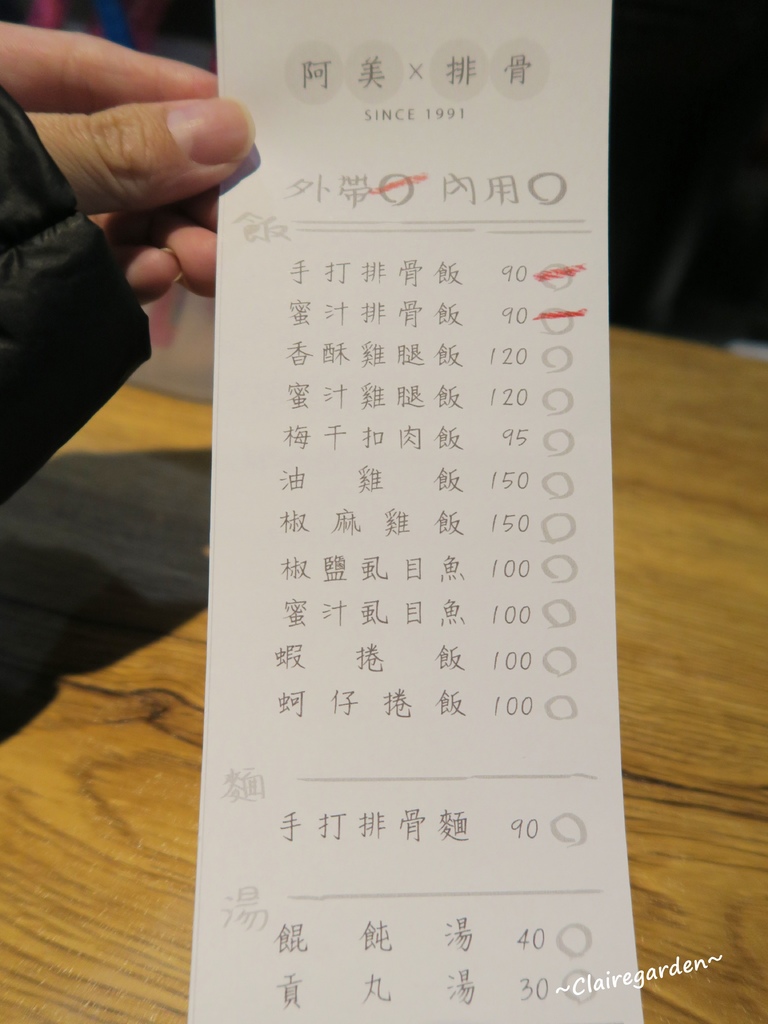 阿美×排骨
SINCE 1991
外帶 內用
飯
手打排骨飯 90
蜜汁排骨飯 90
香酥雞腿飯 120
蜜汁雞腿飯 120
梅干扣肉飯 95
油雞飯 150
椒麻雞飯 150
椒鹽虱目魚 100
蜜汁虱目魚 100
蝦捲飯 100
蚵仔捲飯 100
麵
手打排骨麵 90
湯
餛飩湯 40
貢丸湯 30
~Clairegarden~